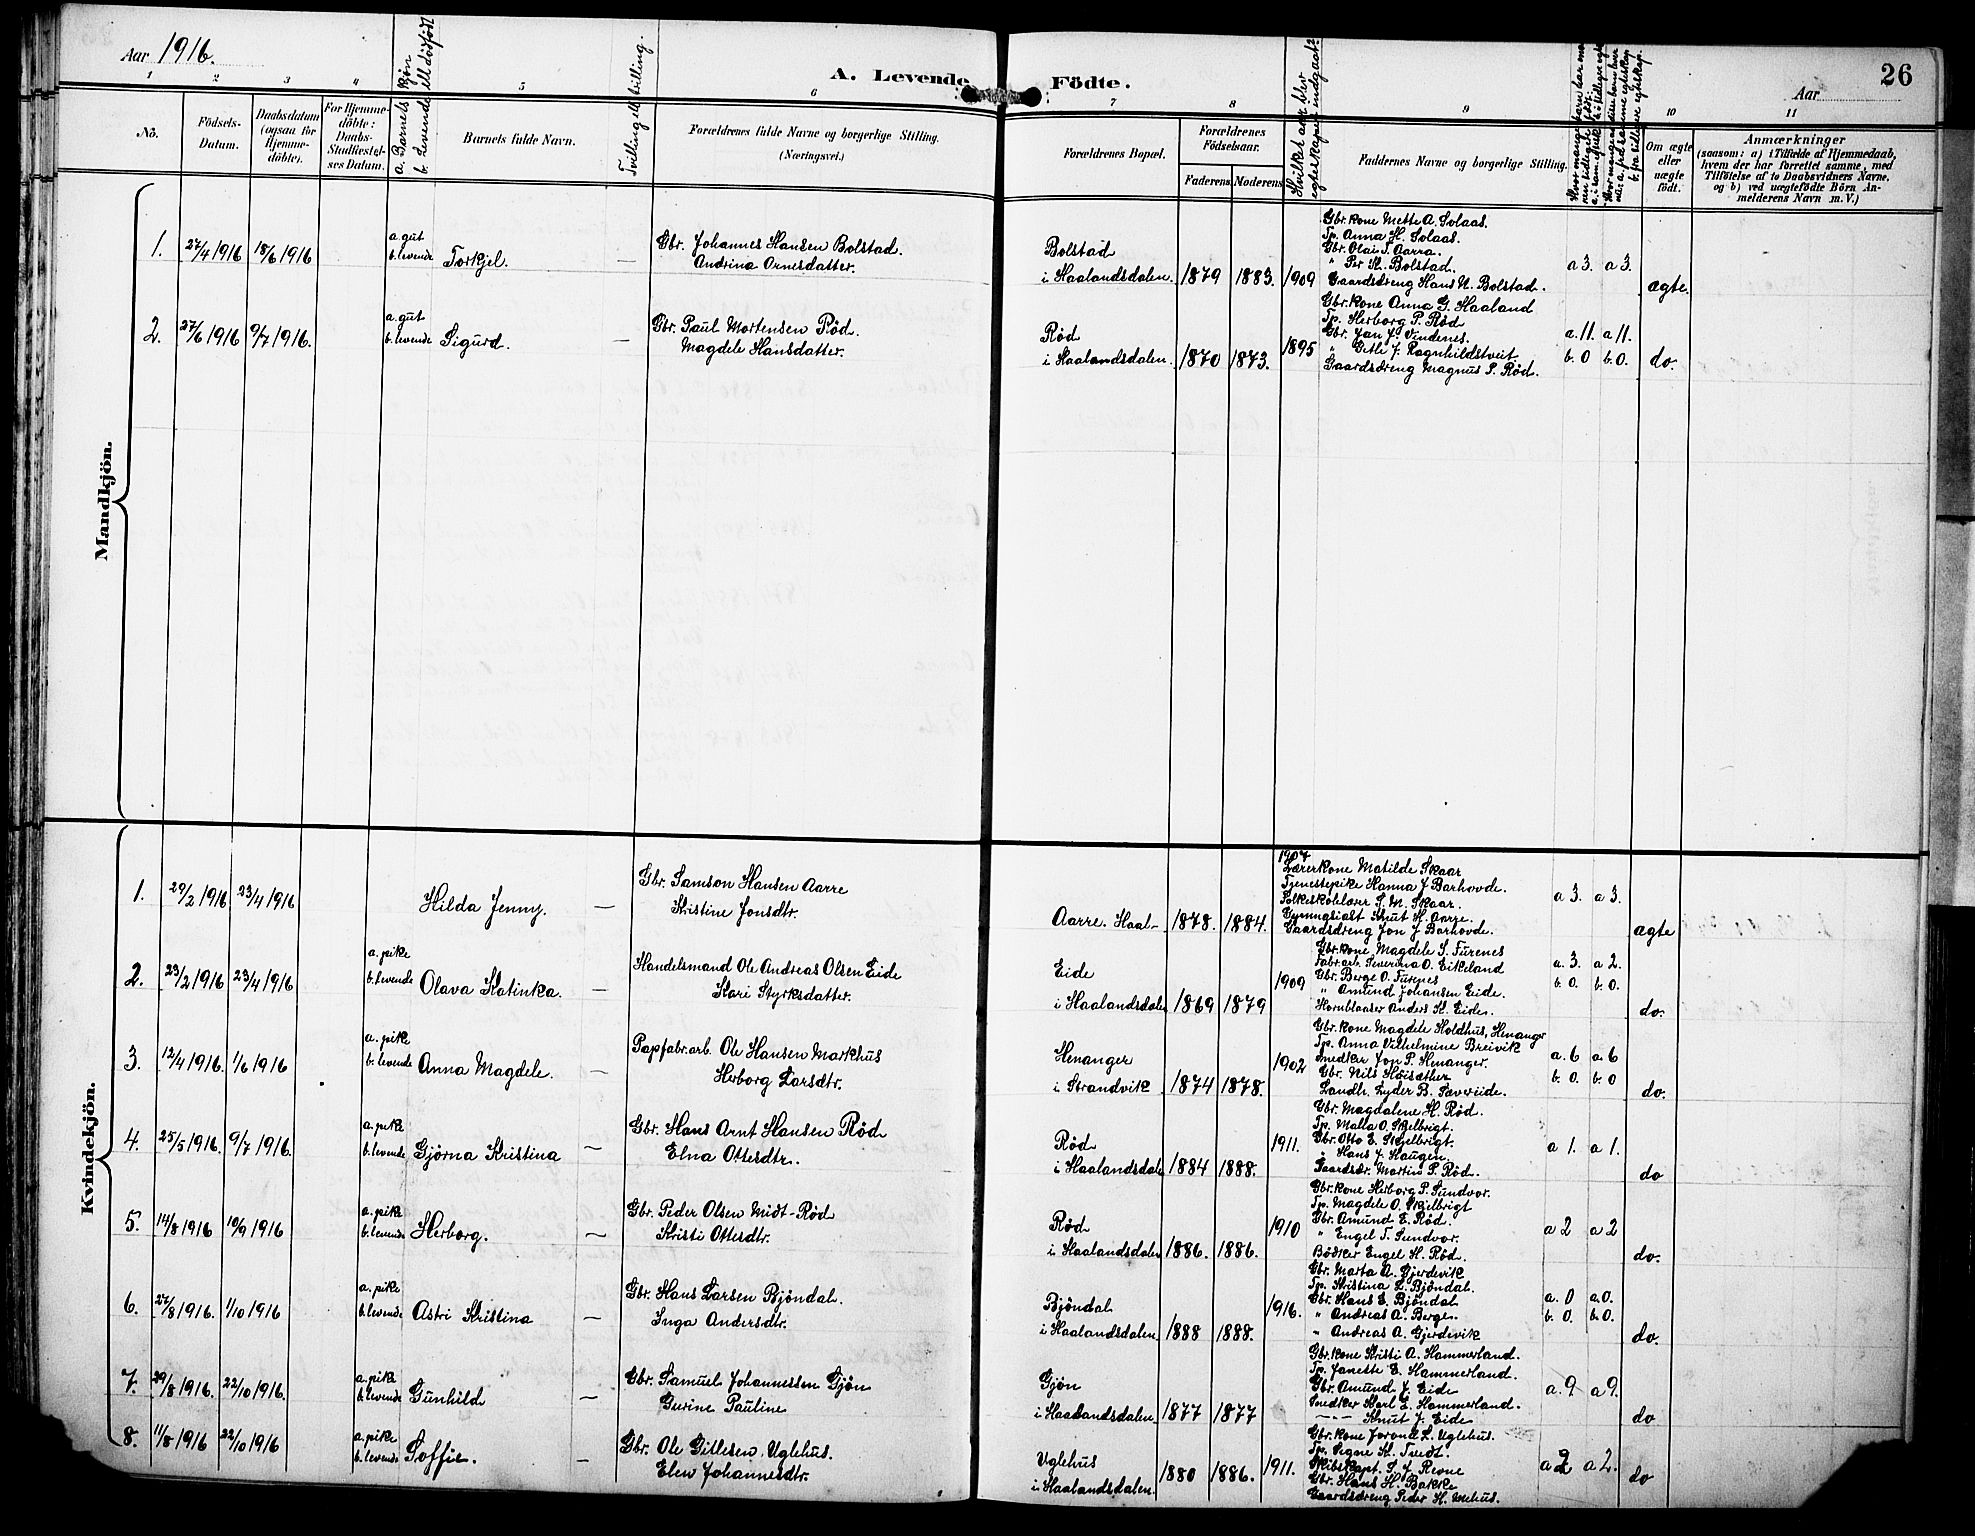 Aar 1916.
A. Levende Födte.
Aar
26
1 2 3 4 5 6 7 8 9 10 11
No.
Födsels-Datum.
Daabsdatum (ogsaa for Hjemme-döbte).
For Hjemme-döbte: Daabs-Stadfæstel-ses Datum.
a. Barnets Kjön
b. Levende ell dödfödt
Barnets fulde Navn.
Tvilling ell trilling.
Forældrenes fulde Navne og borgerlige Stilling.
(Næringsvei.)
Forældrenes Bopæl.
Forældrenes Födselsaar.
Faderens. Moderens.
Hvilket aar blev egteskapet indgaat?
Faddernes Navne og borgerlige Stilling.
Om ægte eller uægte födt.
Anmærkninger
(saasom: a) i Tilfælde af Hjemmedaab,
hvem der har forrettet samme, med
Tilföielse af to Daabsvidners Navne,
og b) ved uægtefödte Börn An-
melderens Navn m. V.)
Mandkjön.
1. 27/4 1916 18/6 1916 a. gut b. levende Torkjel. — Gbr. Johannes Hansen Bolstad. Andrina Ornesdatter. Bolstad i Haalandsdalen. 1879 1883. 1909
Gbr. kone Mette A. Solaas.
Tp. Anna H. Solaas.
Gbr. Olai T. Aarra.
" Per H. Bolstad.
Gaardsdreng Hans N. Bolstad.
a 3. a 3. ægte.
2. 27/6 1916 9/7 1916. a. gut b. levende Sigurd. — Gbr. Paul Mortensen Röd. Magdele Hansdatter. Röd i Haalandsdalen. 1870 1873. 1895
Gbr. kone Anna G. Haaland
Tp. Herborg P. Röd
Gbr. Jan J. Vindenes.
" Gitle J. Ragnhildstveit
Gaardsdreng Magnus P. Röd.
a. 11. a 11.
b. 0 b. 0. do.
Kvindekjön.
1. 29/2 1916 23/4 1916 Hilda Jenny. — Gbr. Samson Hansen Aarre Kristine Jonsdtr. Aarre. Haal- 1878. 1884. 1907
Lærerkone Matilde Skaar
Tjenestepike Hanna J Barhovde.
Folkeskolelærer S. M. Skaar.
Gymnasiast Knut H. Aarre.
Gaardsdreng Jon J Barhovde.
a 3. a 3. ægte
2. 23/2 1916 23/4 1916 a. pike b. levende Olava Katinka. — Handelsmand Ole Andreas Olsen Eide Kari Styrksdatter. Eide i Haalandsdalen 1869 1879 1909
Gbr. kone Magdele S. Furenes
Fabr. arb. Severina O. Eikeland
Gbr. Berge O. Furenes
" Amund Johansen Eide.
Hornblaaser Anders K. Eide.
a. 3. a 2.
b. 0. b. 0. do.
3. 12/4 1916. 1/6 1916 a. pike b. levende Anna Magdele. — Papfabr. arb. Ole Hansen Markhus Herborg Larsdtr. Henanger i Strandvik 1874 1878. 1902
Gbr. kone Magdele Holdhus, Henanger
Tp. Anna Vilhelmine Breivik
Snedker Jon P. Henanger.
Gbr. Nils Höisæther
Landh. Lyder B. Sævereide.
a. 6 a. 6
b. 0. b. 0 do.
4. 25/5 1916. 9/7 1916. a. pike b. levende Gjörna Kristina — Gbr. Hans Arnt Hansen Röd Elna Ottesdtr. Röd i Haalandsdalen 1884 1888. 1911.
Gbr. Magdalene H. Röd.
Tp. Malla O. Skjelbrigt.
Gbr. Otto E. Skjelbrigt.
" Hans J. Haugen.
Gaardsdr. Martin P. Röd.
a 1. a 1. do
5. 14/8 1916 10/9 1916 a. pike b. levende Herborg. — Gbr. Peder Olsen Midt-Röd Kristi Ottesdtr. Röd i Haalandsdalen 1886. 1886. 1910
Gbr. kone Herborg P. Sundvor.
Tp. Magdele O. Skjelbrigt
Gbr. Amund E. Röd.
" Engel T. Sundvor.
Bödker Engel H. Röd.
a 2 a 2 do.
6. 27/8 1916. 1/10 1916 a. pike b. levende Astri Kristina — Gbr. Hans Larsen Bjöndal. Inga Andersdtr. Bjöndal i Haalandsdalen. 1888 1888. 1916.
Gbr. Marta A. Gjerdevik
Tp. Kristina L. Bjöndal.
Gbr. Hans E. Bjöndal
" Andreas A. Berge.
" Andreas A. Gjerdevik
a. 0 a. 0.
b. 0. b. 0. do.
7. 29/8 1916. 22/10 1916. a. pike b. levende Gunhild — Gbr. Samuel Johannessen Gjön Gurine Pauline Gjön i Haalandsdalen. 1877 1877
Gbr. kone Kristi A. Hammerland.
Tp. Janette E. Hammerland.
Gbr. Amund J. Eide
Snedker Karl E. Hammerland.
—"— Knut J. Eide
a. 9 a 9. do
8. 11/8 1916 22/10 1916 a. pike b. levende Soffie. — Gbr. Ole Gitlesen, Uglehus. Elen Johannesdtr. Uglehus i Haalandsdalen. 1880 1886. 1911.
Gbr. kone Jorond L. Uglehus.
Tp. Signe K. Tvedt.
Skibskapt. S. J. Revne
Gbr. Hans H. Bakke
Gaardsdreng Peder H. Mehus.
a 2 a 2. do